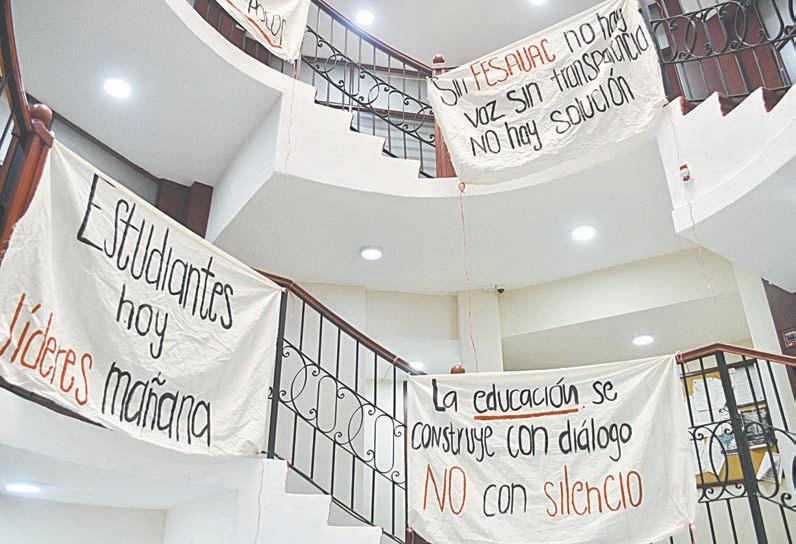 Sin FESAUAC no hay
voz sin transparencia
NO hay solución
Estudiantes
hoy
líderes mañana
La educación se
construye con diálogo
NO con silencio